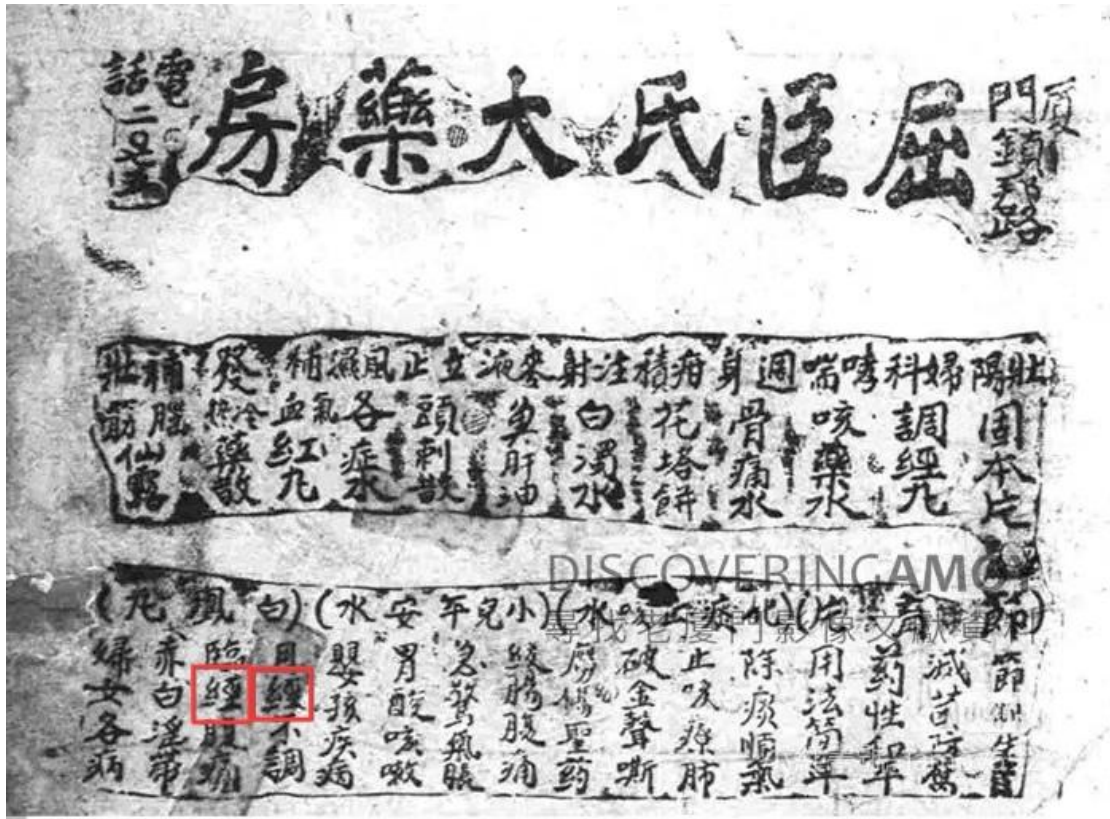 廈門鎮邦路
屈臣氏大藥房
電話二〇
壯陽固本片
婦科調經丸
哮喘咳藥水
週身骨痛水
疳積花塔餅
注射白濁水
麥液魚肝油
立止頭刺散
風濕各症水
補氣血紅丸
發冷熱藥散
補腦壯筋仙露
(節育片)
節制生育
滅菌防
药性和平
用法簡單
(化痰止咳水)
除痰順氣
止咳療肺
破金聲嘶
癆傷聖药
(小兒平安水)
腸腹痛
急驚風脹
胃酸咳嗽
嬰孩疾病
(白鳳丸)
月經不調
臨經腹痛
赤白淫帶
婦女各病
DISCOVERINGAMO
尋找老廈門影像文獻資料